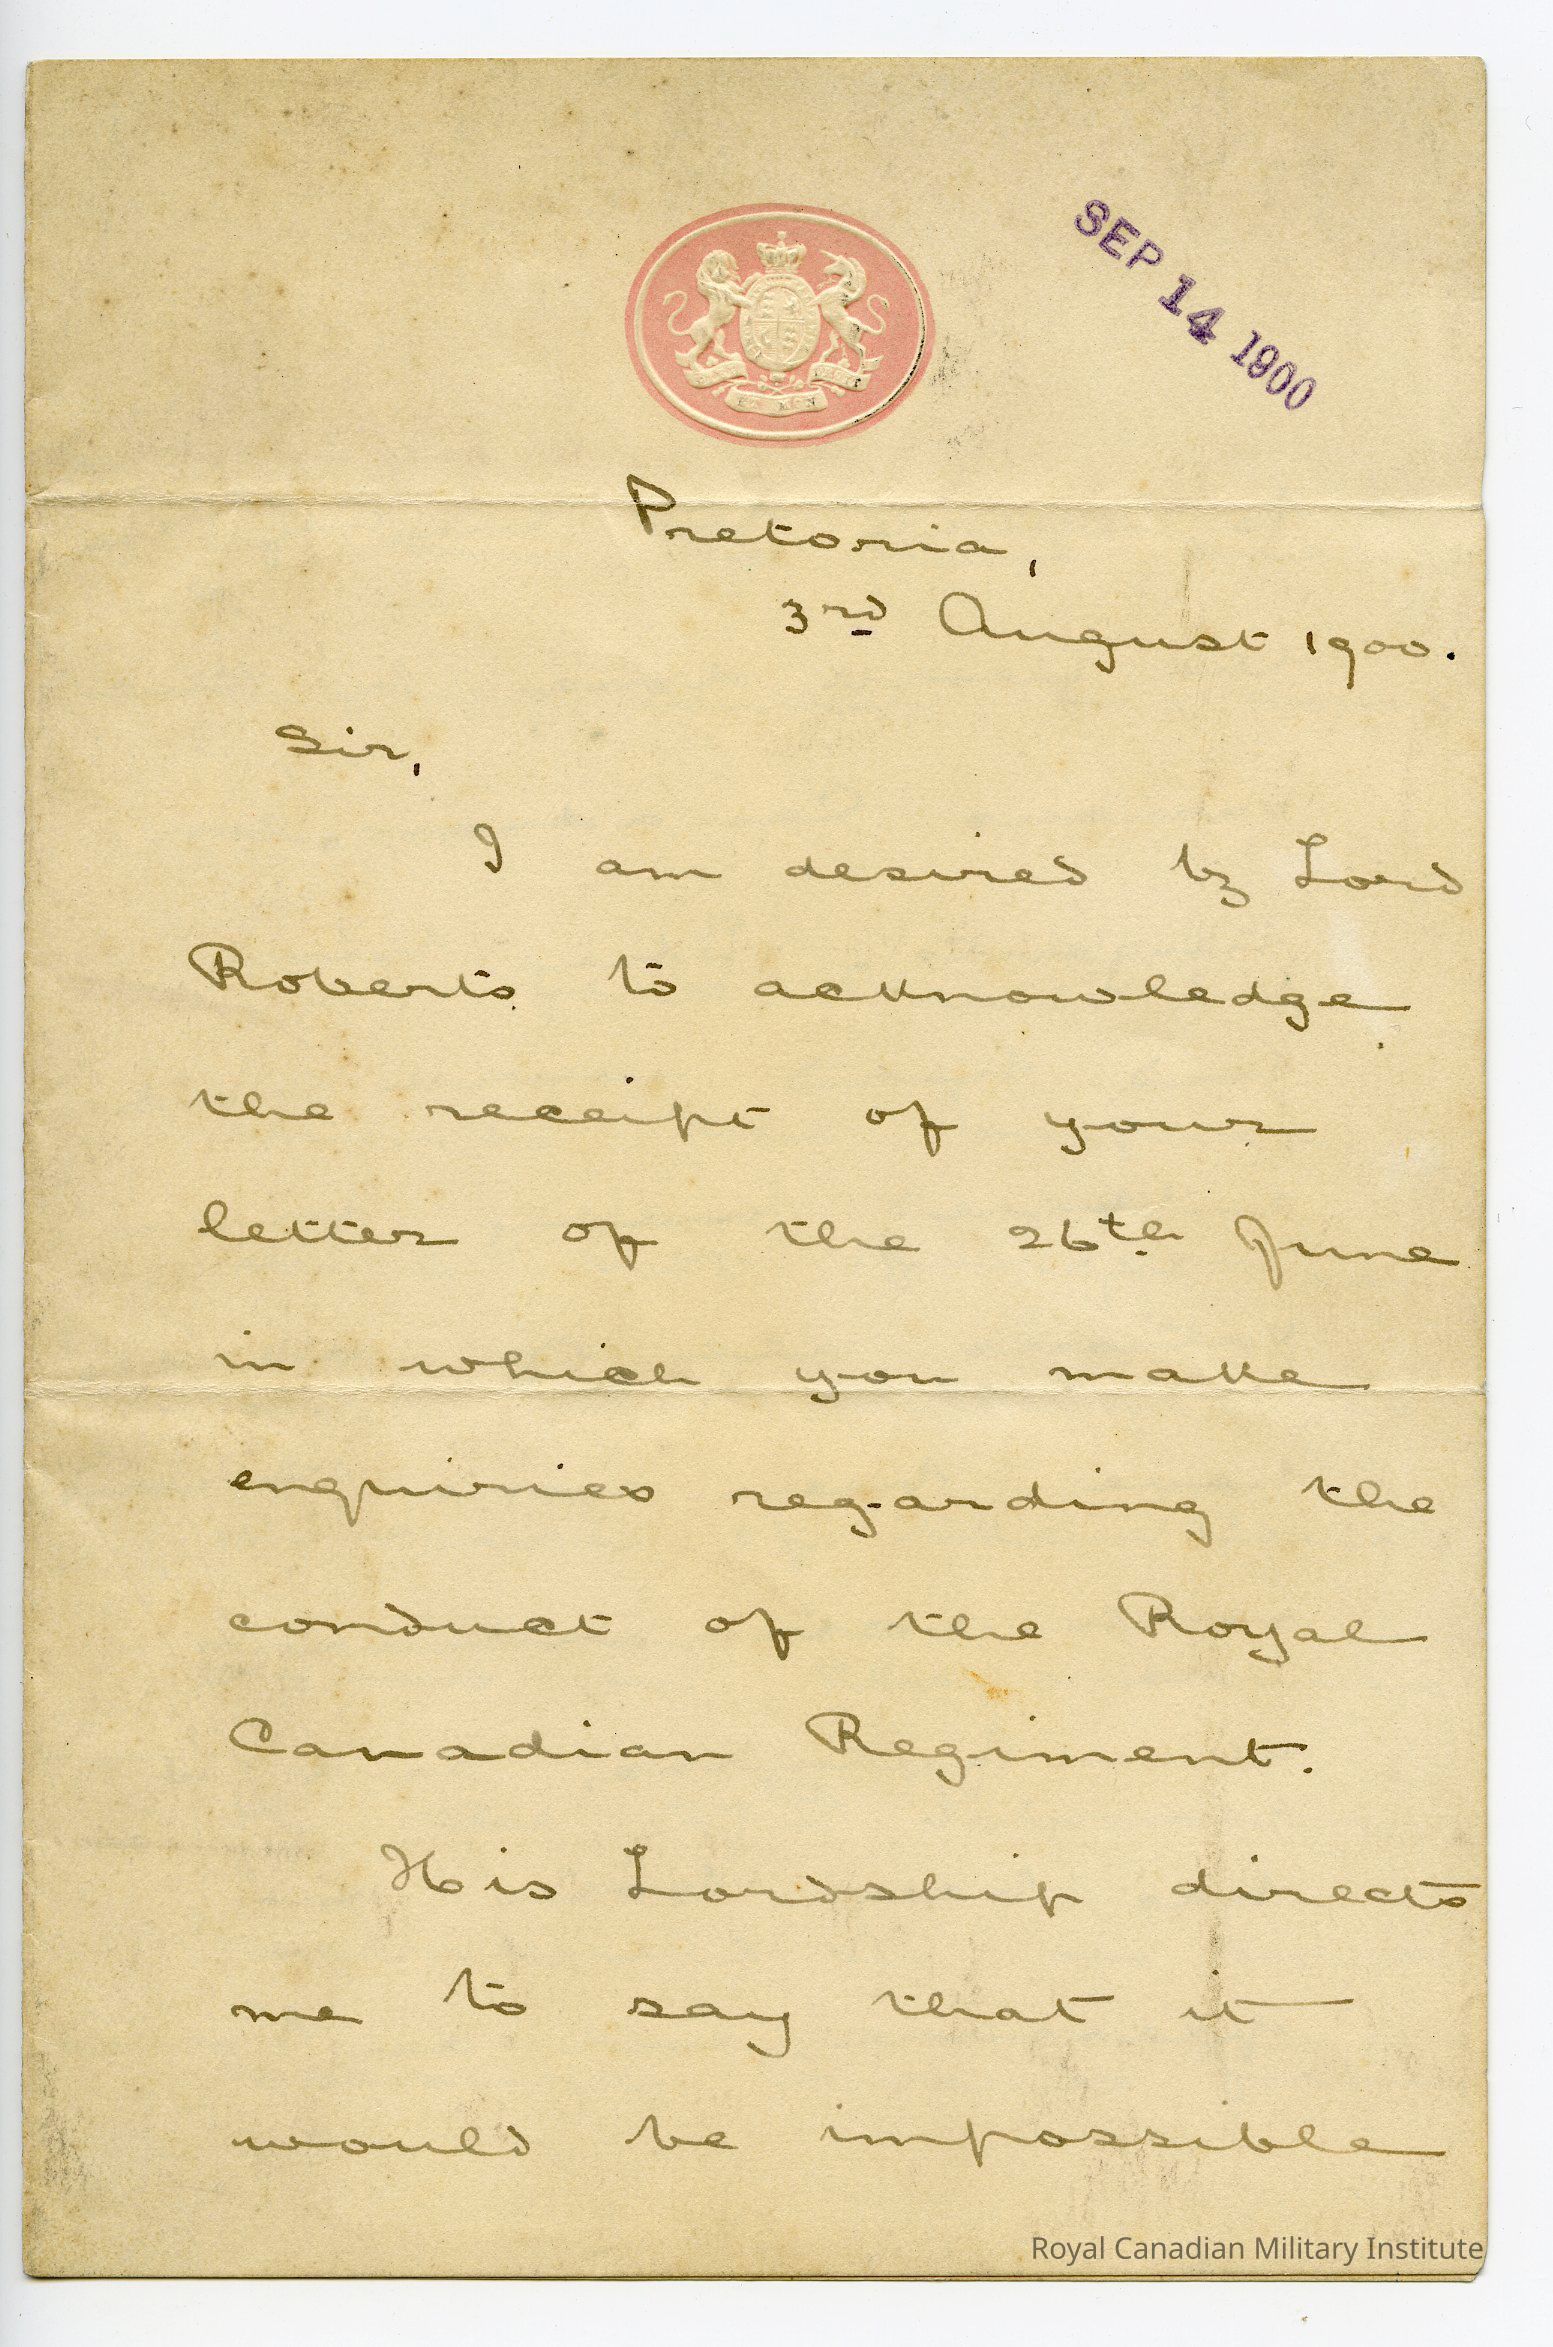 SEP 14 1900
Pretoria,
3rd August 1900.
Sir,
I am desired by Lord
Roberts to acknowledge
the receipt of your
letter of the 26th June
in which you make
enquiries regarding the
conduct of the Royal
Canadian Regiment.
His Lordship directs
me to say that it
would be impossible
Royal Canadian Military Institute